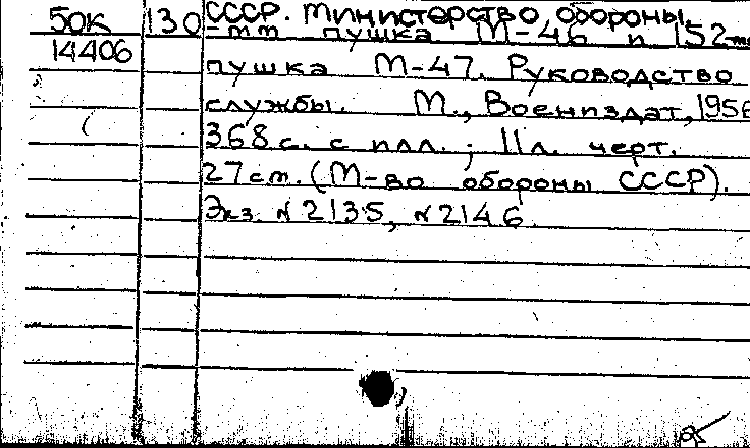 50К СССР. Министерство обороны
130-мм пушка М-46 и 152-мм
14406
пушка М-47. Руководство
службы. М., Воениздат, 1956
368 с. с илл.; 11 л. черт.
27 см. (М-во обороны СССР).
Экз. № 2135, № 2146